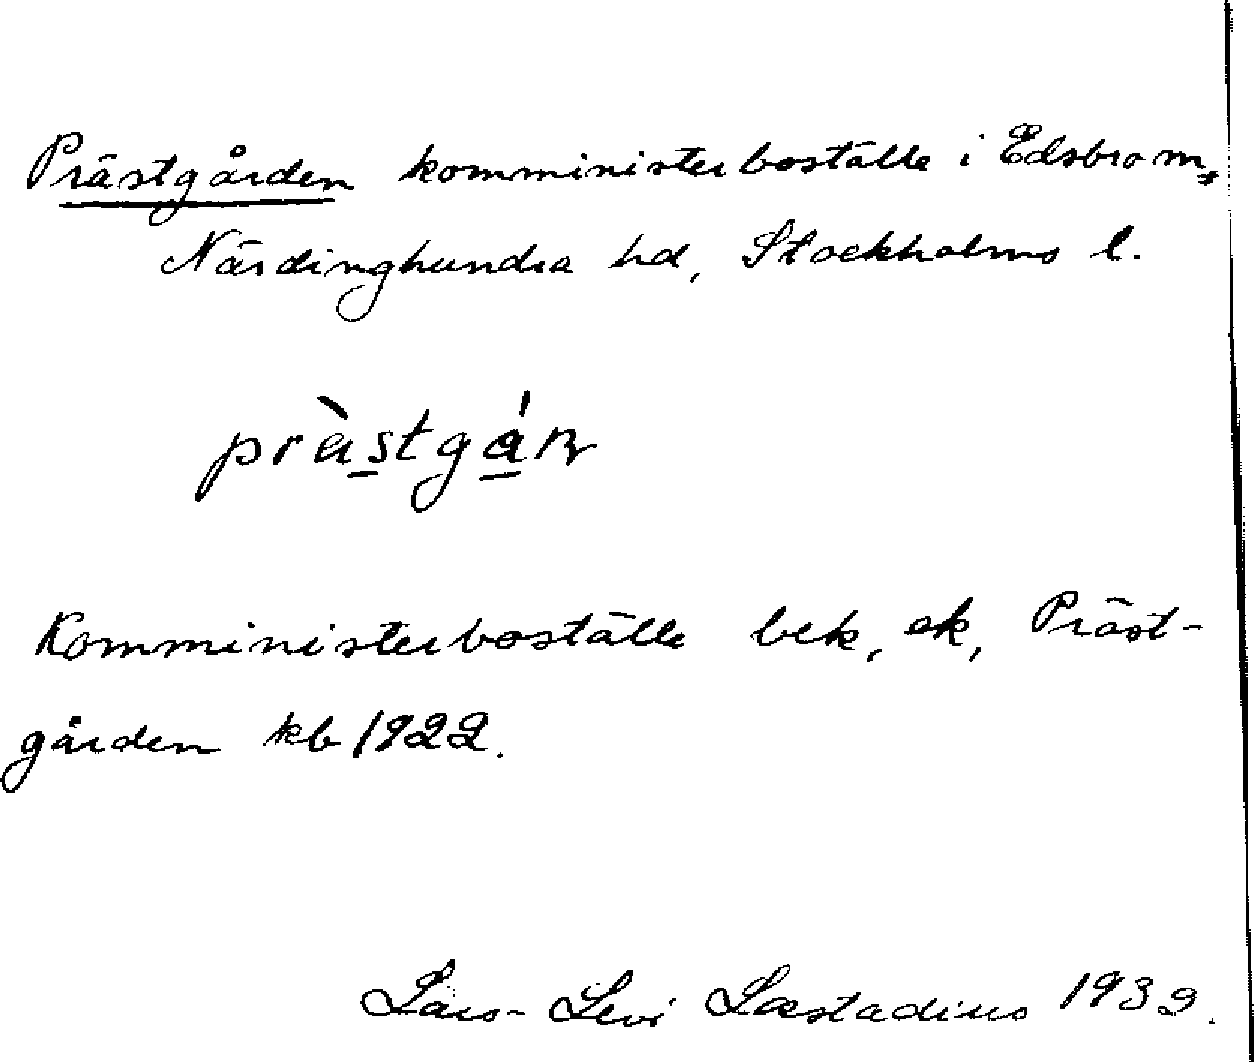 Prästgården komministerboställe i Edsbro sn,
Närdinghundra hd, Stockholms l.
prästgán
Komministerboställe bek, ek, Präst-
gården kb 1922.
Lars-Levi Læstadius 1932.